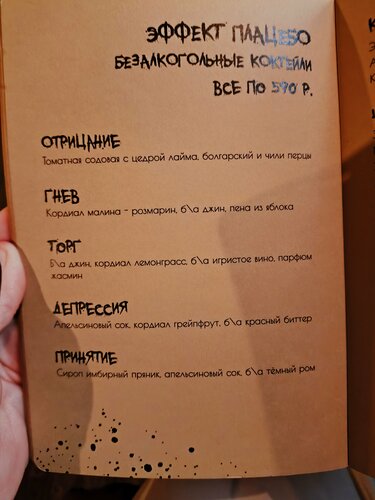 ЭФФЕКТ ПЛАЦЕБО
БЕЗАЛКОГОЛЬНЫЕ КОКТЕЙЛИ
ВСЕ ПО 590 Р.
ОТРИЦАНИЕ
Томатная содовая с цедрой лайма, болгарский и чили перцы
ГНЕВ
Кордиал малина - розмарин, б\а джин, пена из яблока
ТОРГ
Б\а джин, кордиал лемонграсс, б\а игристое вино, парфюм
жасмин
ДЕПРЕССИЯ
Апельсиновый сок, кордиал грейпфрут, б\а красный биттер
ПРИНЯТИЕ
Сироп имбирный пряник, апельсиновый сок, б\а тёмный ром